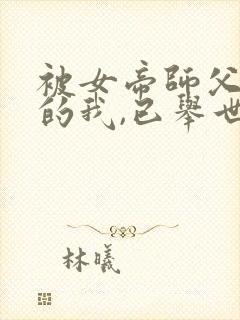 被女帝師父
的我,已舉世
林曦